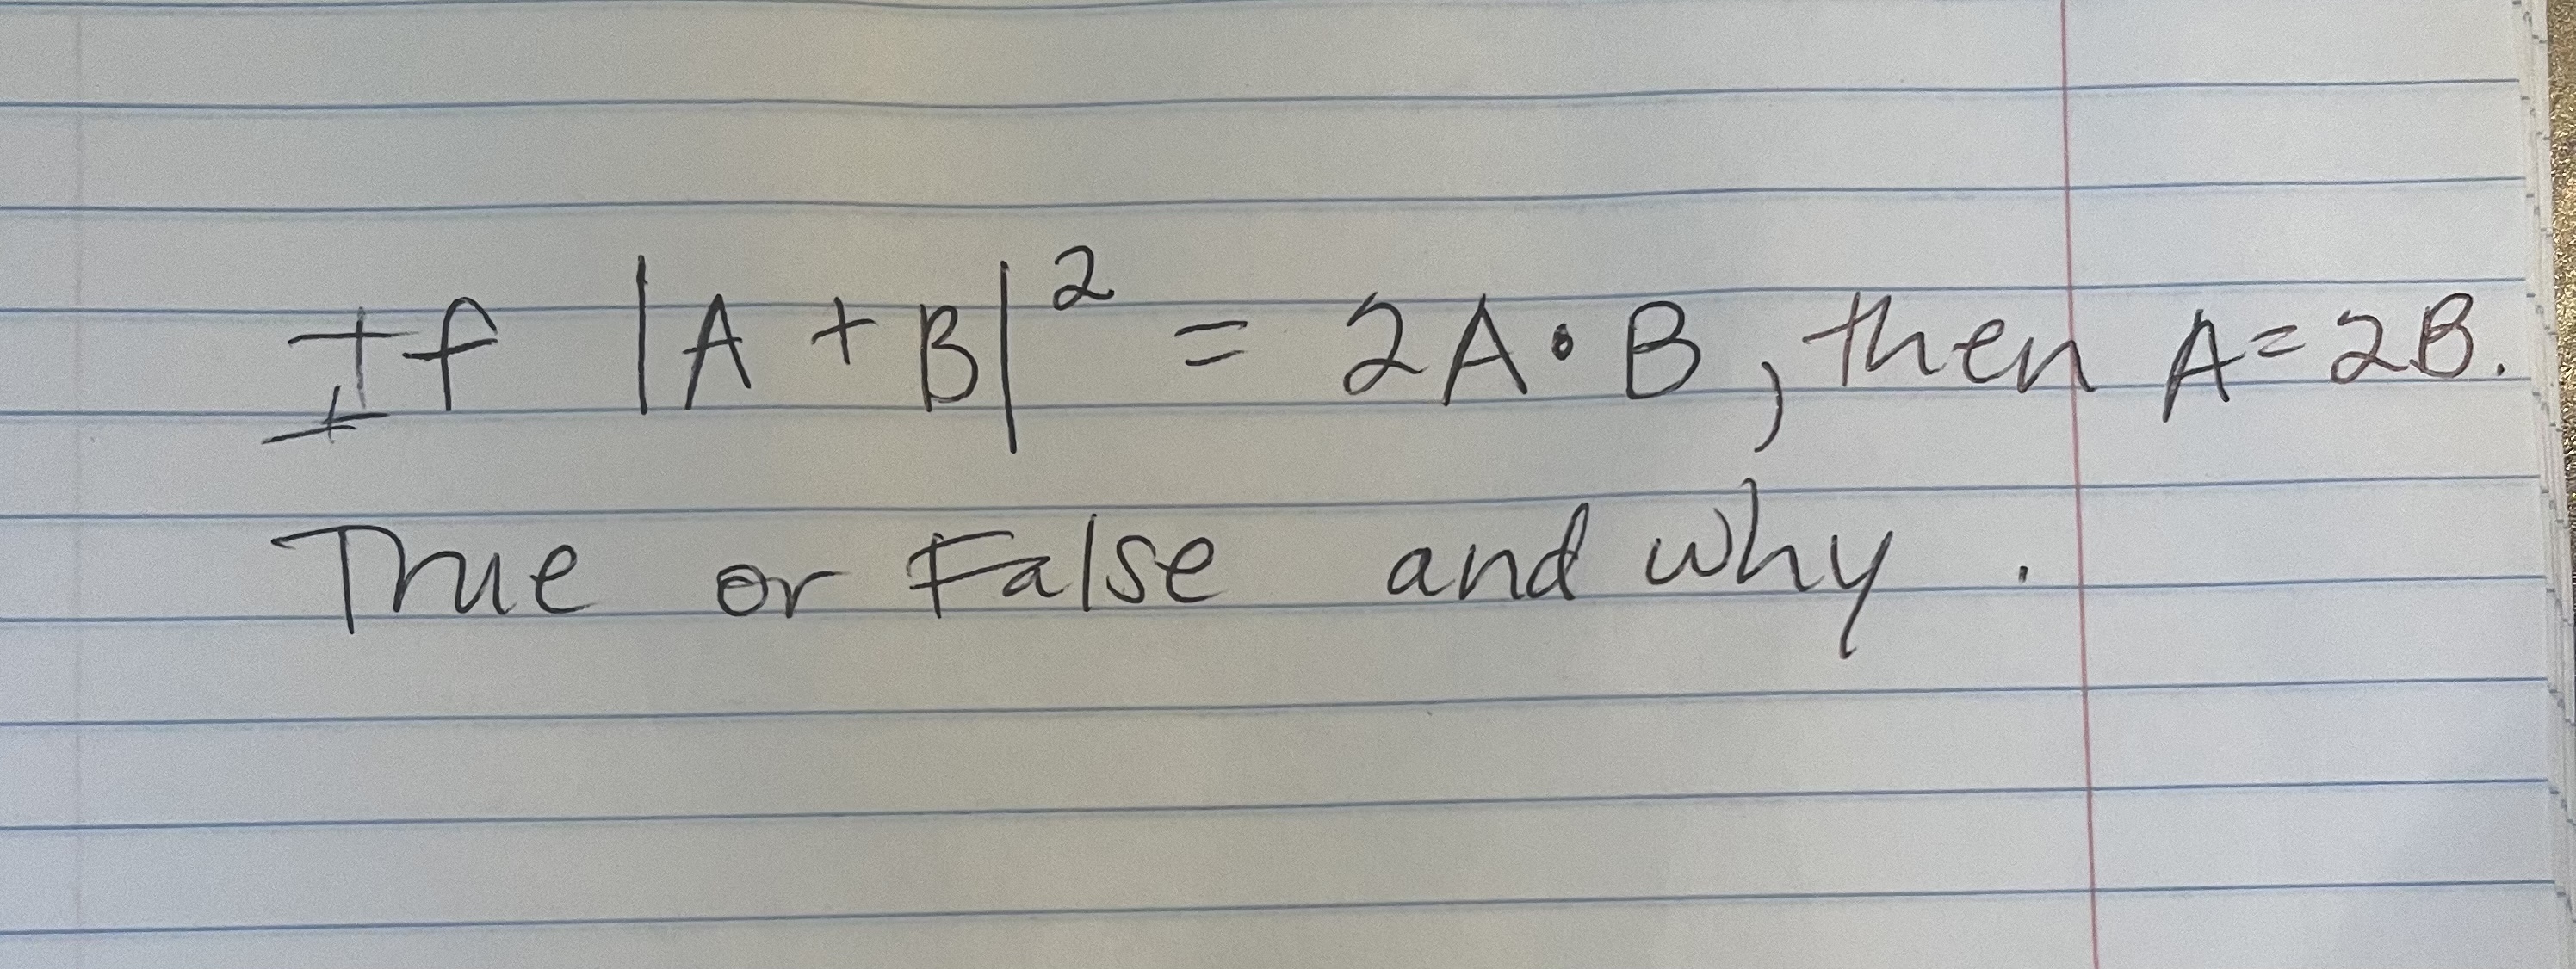 If |A + B|² = 2A • B, then A = 2B.
True or False and why.